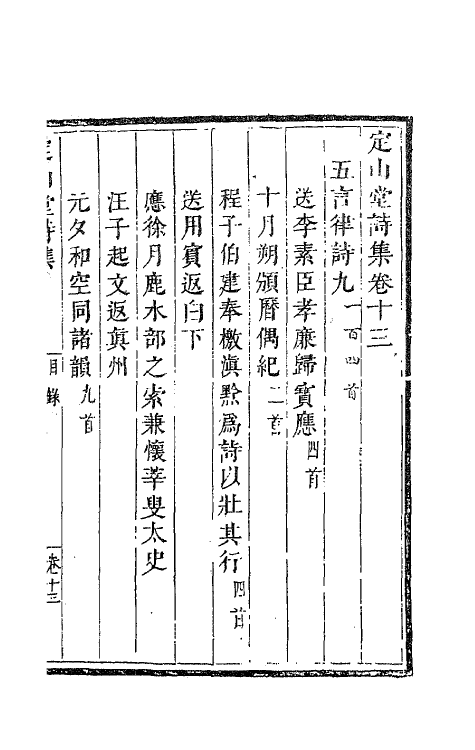 定山堂詩集卷十三
五言律詩九一百四首
送李素臣孝廉歸寶應四首
十月朔頒曆偶紀二首
程子伯建奉檄滇黔爲詩以壯其行四首
送用賓返白下
應徐月鹿水部之索兼懷莘叟太史
汪子起文返真州
元夕和空同諸韻九首
定山堂詩集 目錄 卷十三